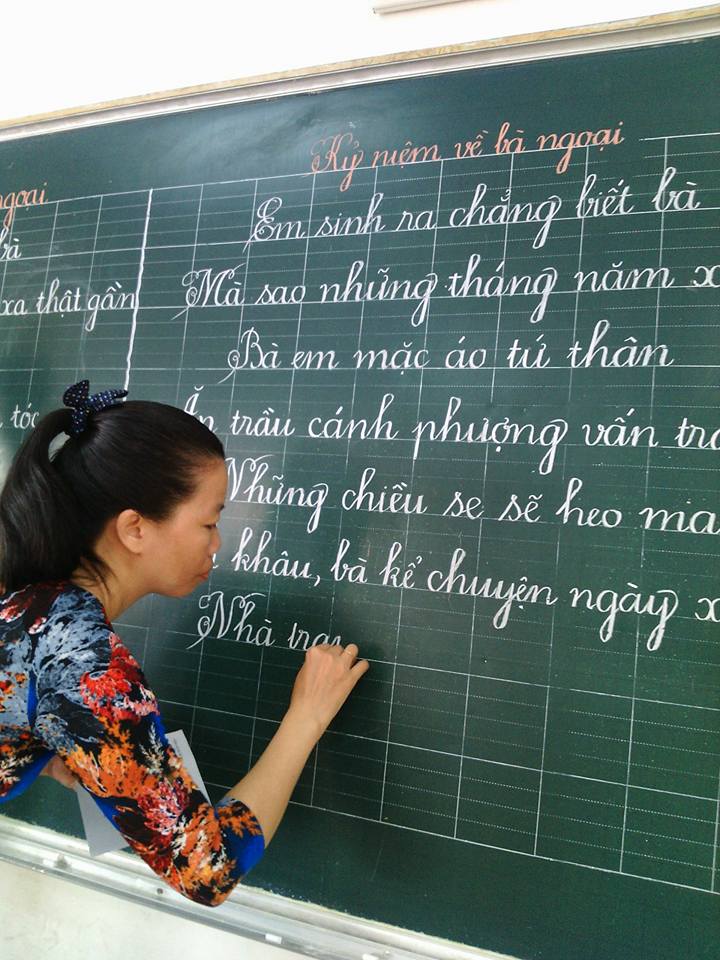 ngoại
bà
xa thật gần
tóc
Kỷ niệm về bà ngoại
Em sinh ra chẳng biết bà
Mà sao những tháng năm x
Bà em mặc áo tứ thân
Ăn trầu cánh phượng vấn tr
Những chiều se sẽ heo ma
khâu, bà kể chuyện ngày x
Nhà tra